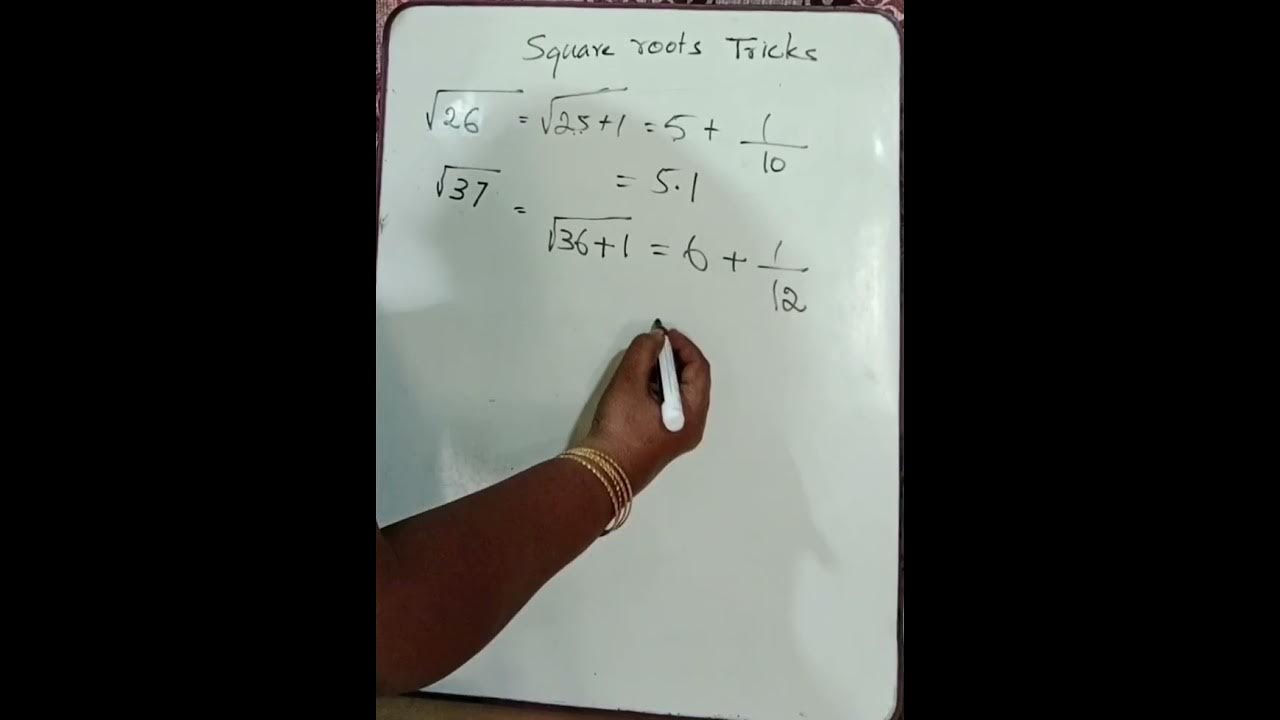 Square roots Tricks
√26 = √25+1 = 5 + 1/10
= 5.1
√37 = √36+1 = 6 + 1/12